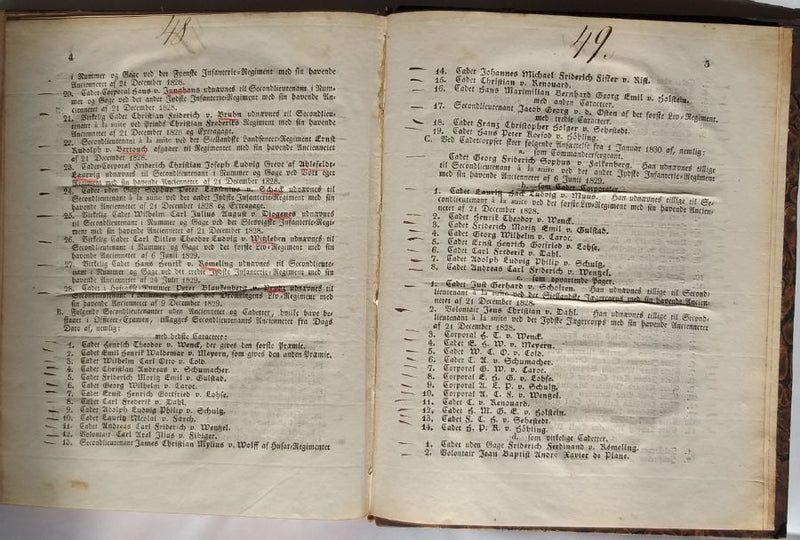 48
4
i Nummer og Gage ved det Fyenske Infanterie-Regiment med sin havende
Anciennetet af 21 December 1828.
20. Cadet-Corporal Hans v. Junghans udnævnes til Secondlieutenant i Num-
mer og Gage ved det andet Jydske Infanterie-Regiment med sin havende An-
ciennetet af 21 December 1828.
21. Virkelig Cadet Christian Friderich v. Bruhn udnævnes til Secondlieu-
tenant à la suite ved Prinds Christian Frederiks Regiment med sin havende
Anciennetet af 21 December 1828 og Extragage.
22. Secondlieutenant à la suite ved det Siellandske Landseneer-Regiment Ernst
Rudolph v. Bertouch afgaaer til Regimentet med sin havende Anciennetet
af 21 December 1828.
23. Cadet-Corporal Friderich Christian Joseph Ludvig Greve af Ahlefeldt-
Laurvig udnævnes til Secondlieutenant i Nummer og Gage ved Vort eget
Regiment med sin havende Anciennetet af 21 December 1828.
24. Cadet uden Gage Sophus Peter v. Schack udnævnes til
Secondlieutenant à la suite ved det andet Jydske Infanterie-Regiment med sin
havende Anciennetet af 21 December 1828 og Extragage.
25. Virkelig Cadet Wilhelm Carl Julius August v. Diogenes udnævnes
til Secondlieutenant i Nummer og Gage ved det Slesvigske Infanterie-Regi-
ment med sin havende Anciennetet af 21 December 1828.
26. Virkelig Cadet Carl Ditlev Theodor Ludvig v. Wintleben udnævnes til
Secondlieutenant i Nummer og Gage ved det første Liv-Regiment med sin
havende Anciennetet af 6 Junii 1829.
27. Virkelig Cadet Hans Henrik v. Römeling udnævnes til Secondlieute-
nant i Nummer og Gage ved det tredie Jydske Infanterie-Regiment med sin
havende Anciennetet af 24 Juli 1829.
28. Cadet i Nummer Peter Blankenberg v. udnævnes til
Secondlieutenant i Nummer og Gage ved Dronningens Liv-Regiment med
sin havende Anciennetet af 21 December 1828.
B. Følgende Secondlieutenanter uden Anciennetet og Cadetter, hvilke have be-
staaet i Officeer-Examen, tillægges Secondlieutenants Anciennetet fra Dags
Dato af, nemlig:
med bedste Caracteer:
1. Cadet Henrich Theodor v. Wenck, der gives den første Præmie.
2. Cadet Emil Henrik Waldemar v. Meyern, som gives den anden Præmie.
3. Cadet Wilhelm Carl Otto v. Cold.
4. Cadet Christian Andreas v. Schumacher.
5. Cadet Friderich Moritz Emil v. Gulstad.
6. Cadet Georg Wilhelm v. Caroc.
7. Cadet Ernst Henrich Gottfried v. Lohse.
8. Cadet Carl Frederik v. Dahl.
9. Cadet Adolph Ludvig Philip v. Schultz.
10. Cadet Lauritz Nicolai v. Færch.
11. Cadet Andreas Carl Friderich v. Wentzel.
12. Volontair Carl Axel Ilius v. Fibiger.
13. Secondlieutenant James Christian Mylius v. Wolff af Husar-Regimentet
49.
5
14. Cadet Johannes Michael Friderich Fister v. Rist.
15. Cadet Christian v. Renouard.
16. Cadet Hans Maximilian Bernhard Georg Emil v. Holstein.
med anden Caracteer.
17. Secondlieutenant Jacob Georg v. d. Osten af det første Liv-Regiment.
med tredie Caracteer.
18. Cadet Franz Christopher Holger v. Sehestedt.
19. Cadet Hans Peter Rosfod v. Höbling.
C. Ved Cadetcorpset skeer følgende Ansættelse fra 1 Januar 1830 af, nemlig:
a. som Commandeersergeant.
Cadet Georg Friderich Sophus v. Falkenberg. Han udnævnes tillige
til Secondlieutenant à la suite ved det andet Jydske Infanterie-Regiment
med sin havende Anciennetet af 6 Junii 1829.
b. som Cadet-Corporaler.
1. Cadet Lauritz Hack Ludvig v. Muus. Han udnævnes tillige til Se-
condlieutenant à la suite ved det første Liv-Regiment med sin havende Ancien-
netet af 21 December 1828.
2. Cadet Henrik Theodor v. Wenck.
3. Cadet Friderich Moritz Emil v. Gulstad.
4. Cadet Georg Wilhelm v. Caroc.
5. Cadet Ernst Henrich Gotfried v. Lohse.
6. Cadet Carl Frederik v. Dahl.
7. Cadet Adolph Ludvig Philip v. Schultz.
8. Cadet Andreas Carl Friderich v. Wentzel.
c. som opvartende Pager.
1. Cadet Just Gerhard v. Scholten. Han udnævnes tillige til Second-
lieutenant à la suite ved det Siellandske Jægercorps med sin havende Ancien-
netet af 21 December 1828.
2. Volontair Jens Christian v. Dahl. Han udnævnes tillige til Second-
lieutenant à la suite ved det Jydske Jægercorps med sin havende Anciennetet
af 21 December 1828.
3. Corporal H. T. v. Wenck.
4. Cadet E. H. W. v. Meyern.
5. Cadet W. C. O. v. Cold.
6. Cadet C. A. v. Schumacher.
7. Corporal G. W. v. Caroc.
8. Corporal E. H. G. v. Lohse.
9. Corporal A. L. P. v. Schultz.
10. Corporal A. C. F. v. Wentzel.
11. Cadet C. v. Renouard.
12. Cadet H. M. G. E. v. Holstein.
13. Cadet F. C. H. v. Sehestedt.
14. Cadet H. P. R. v. Höbling.
d. som virkelige Cadetter.
1. Cadet uden Gage Friderich Ferdinand v. Römeling.
2. Volontair Jean Baptist André Xavier de Plane.